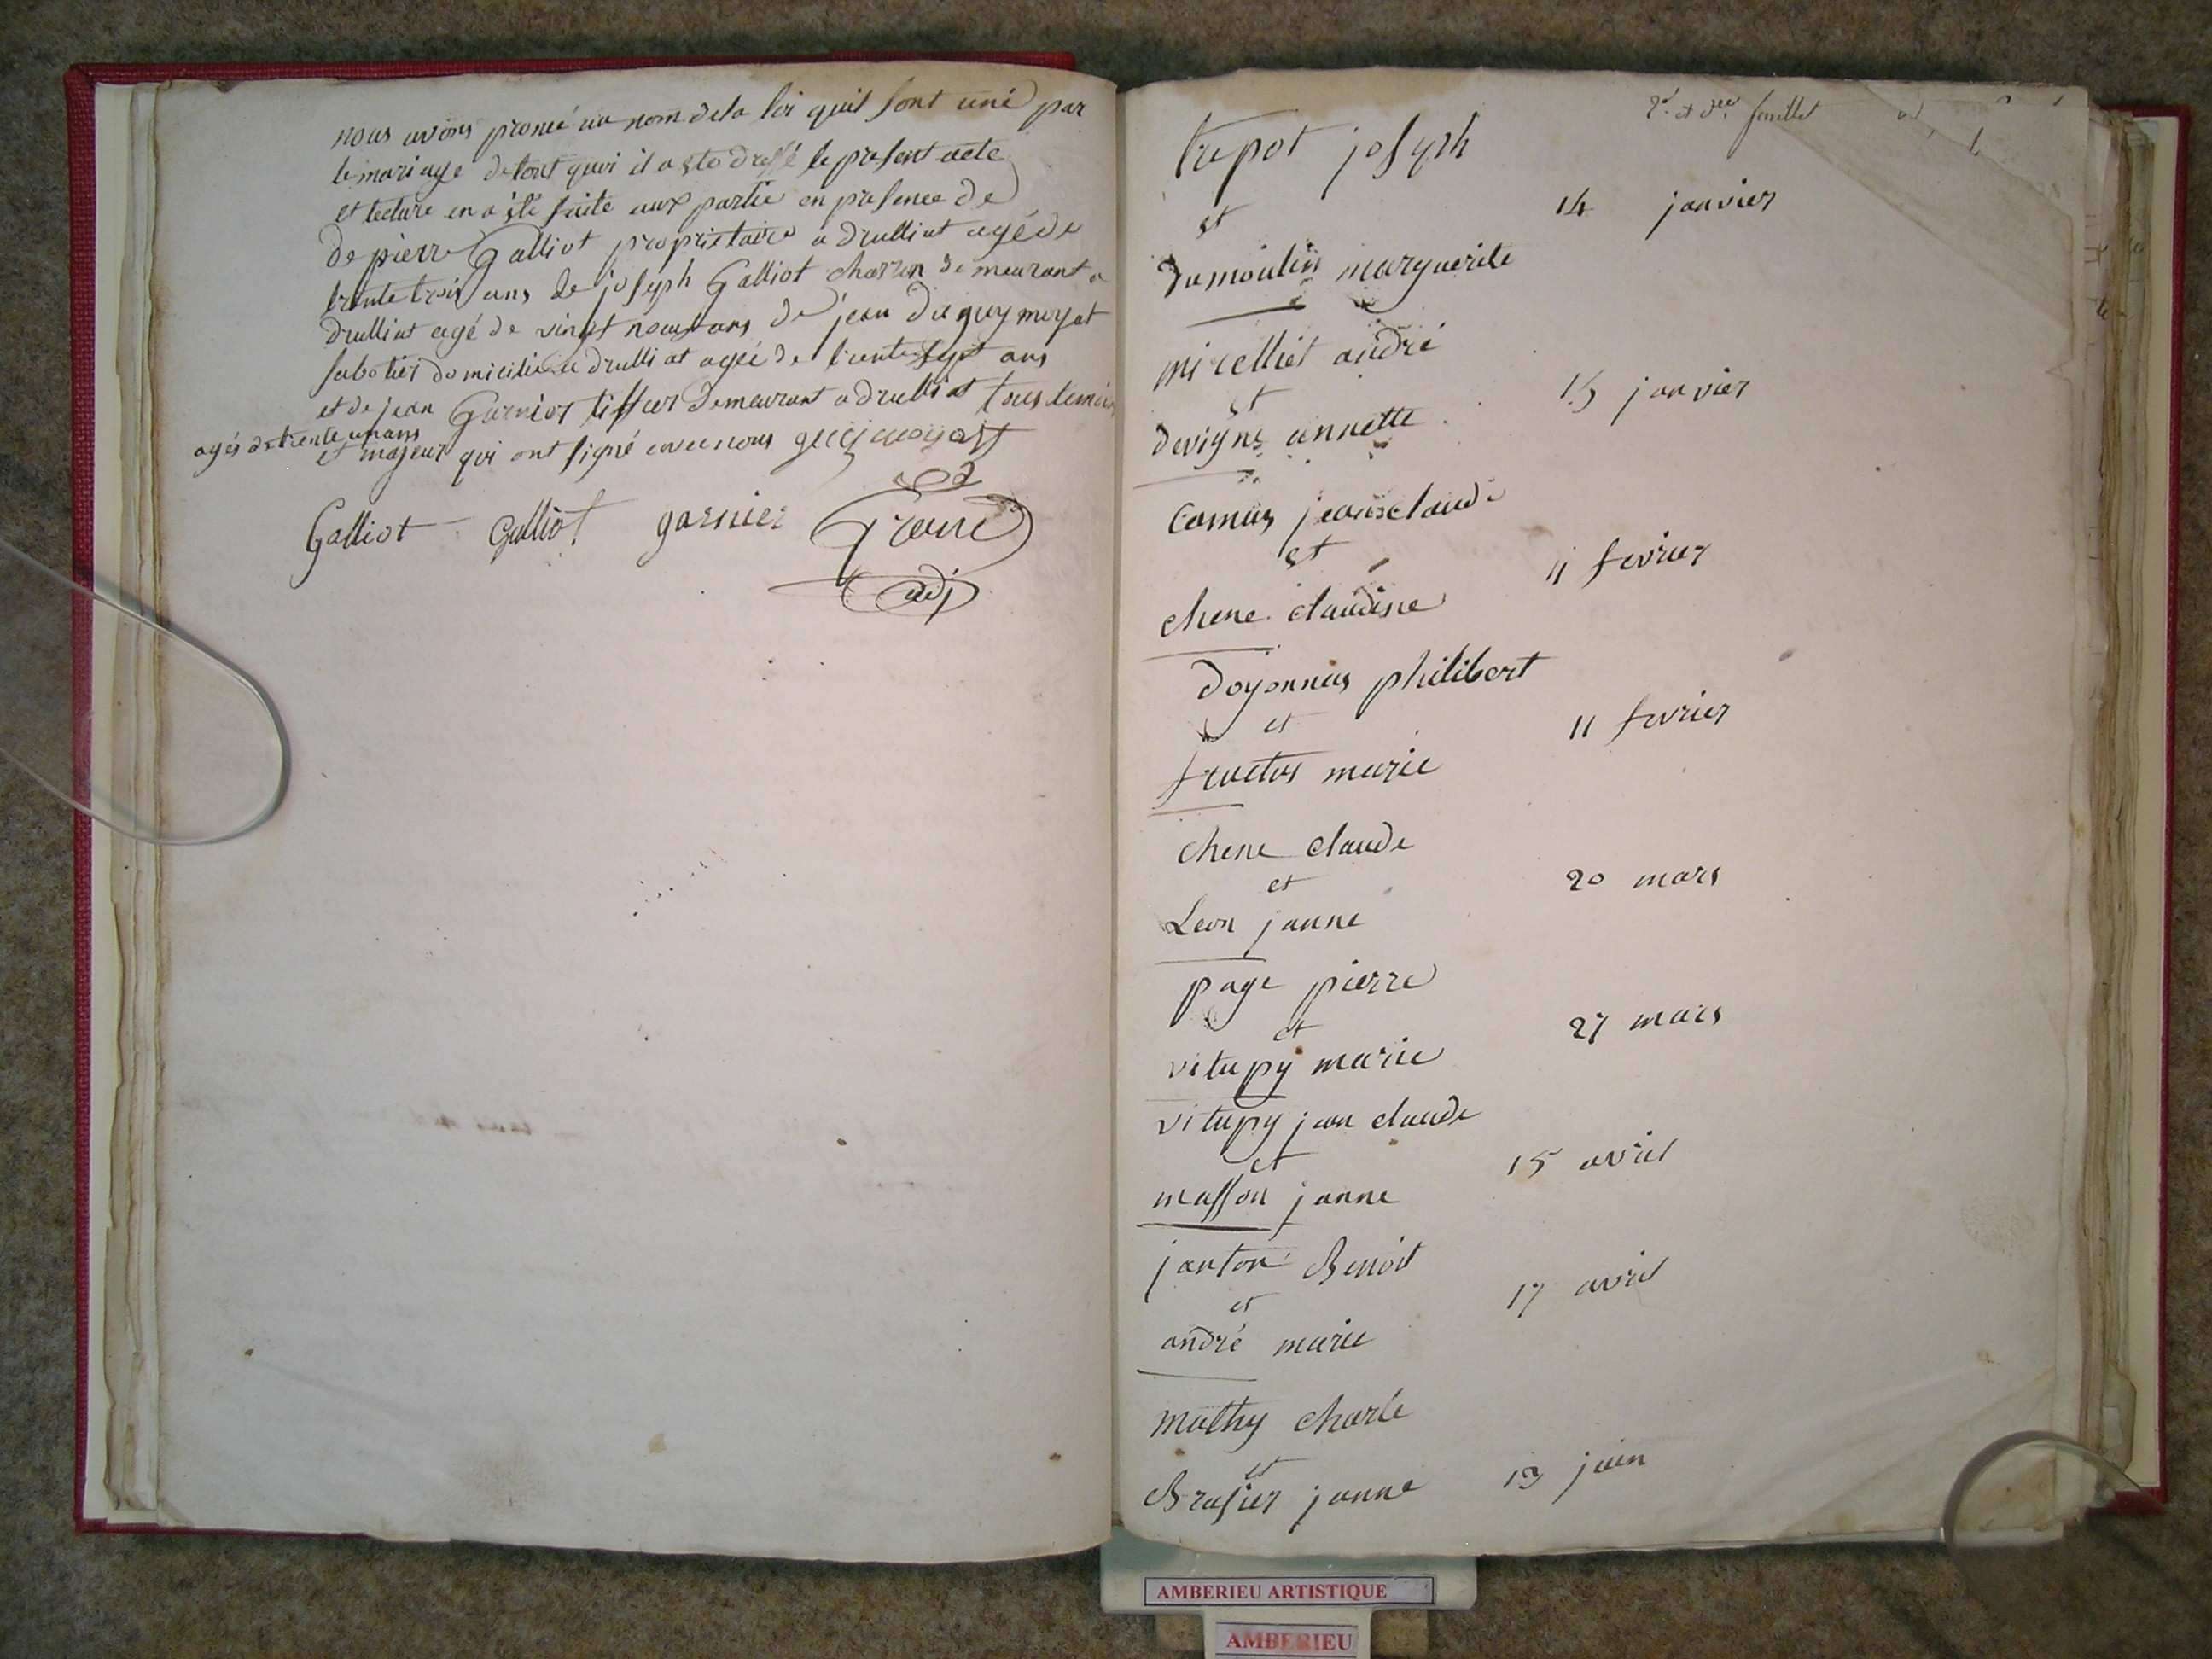 nous avons pronné au nom de la loi quil sont uni par
le mariage de tout quoi il a été dressé le présent acte
et lecture en a été faite aux partie en présence de
de pierre Galliot propriétaire a druilliat agé de
trente trois ans de joseph Galliot charron demeurant a
druilliat agé de vingt neuf ans de jean duguymoyat
sabotier domicilié a druilliat agé de trente sept ans
et de jean Garnier tissier demeurant a druilliat tous temoin
agés de trente un ans
et majeur qui ont signé avec nous
Galliot Galliot garnier
adj
feuillet
trepot joseph
et
14 janvier
dumoulin marguerite
mirelliet andré
et
15 janvier
devigne annette
Camus jean claude
et
11 fevrier
chene claudine
doyonnas philibert
et
11 fevrier
fructus marie
chene claude
et
20 mars
Leon janne
page pierre
et
27 mars
vitupy marie
vitupy jean claude
et
15 avril
masson janne
janton Benoit
et
17 avril
andré marie
mathy charle
et
13 juin
Brasier janne
AMBERIEU ARTISTIQUE
AMBERIEU